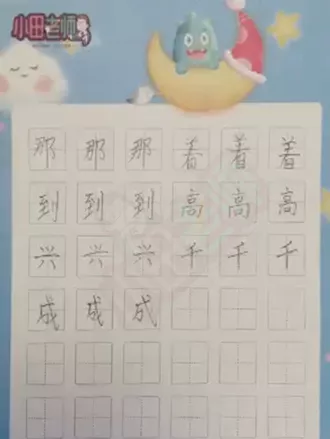 小田老师
那那那着着着
到到到高高高
兴兴兴千千千
成成成